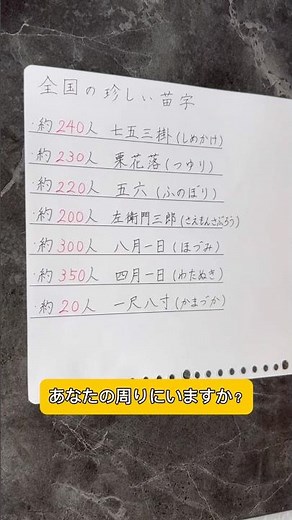 全国の珍しい苗字
・約240人 七五三掛(しめかけ)
・約230人 栗花落(つゆり)
・約220人 五六(ふのぼり)
・約200人 左衛門三郎(さえもんさぶろう)
・約300人 八月一日(ほづみ)
・約350人 四月一日(わたぬき)
・約20人 一尺八寸(かまづか)
あなたの周りにいますか?